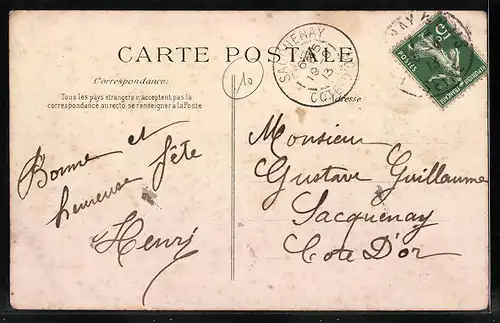 CARTE POSTALE
Correspondance:
Tous les pays étrangers n'acceptent pas la
correspondance au recto, se renseigner à la Poste
Adresse
SACQUENAY
COTE D'OR
5
10
Bonne et
heureuse fête
Henri
Monsieur
Gustave Guillaume
Sacquenay
Cote D'or